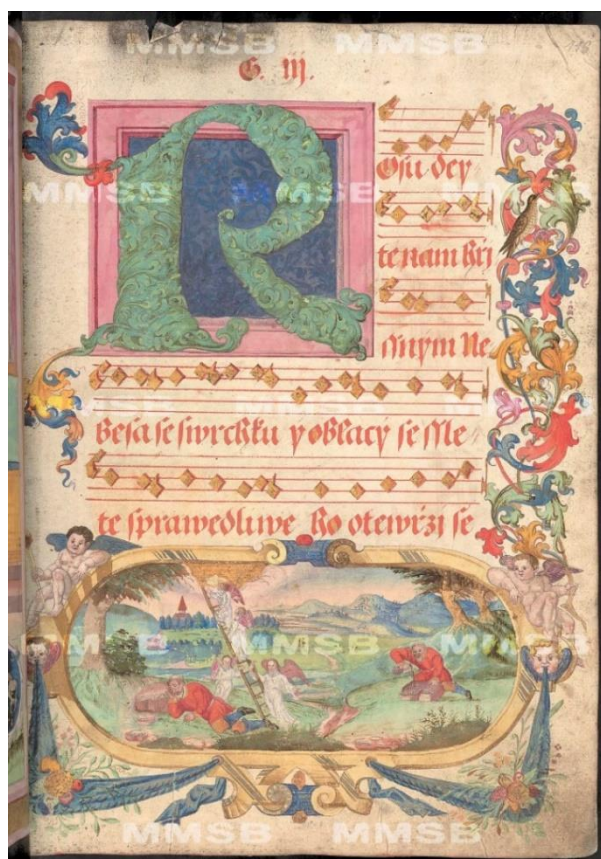 MMSB MMSB
G. iij.
R
oſu dey
MMSB MMSB MMSB
te nam hrj
ſſnym Ne
beſa ſe ſwrchku y oblacy ſe ſſle
te ſprawedliwe ho otewrzi ſe
MMSB MMSB MMSB
MMSB MMSB